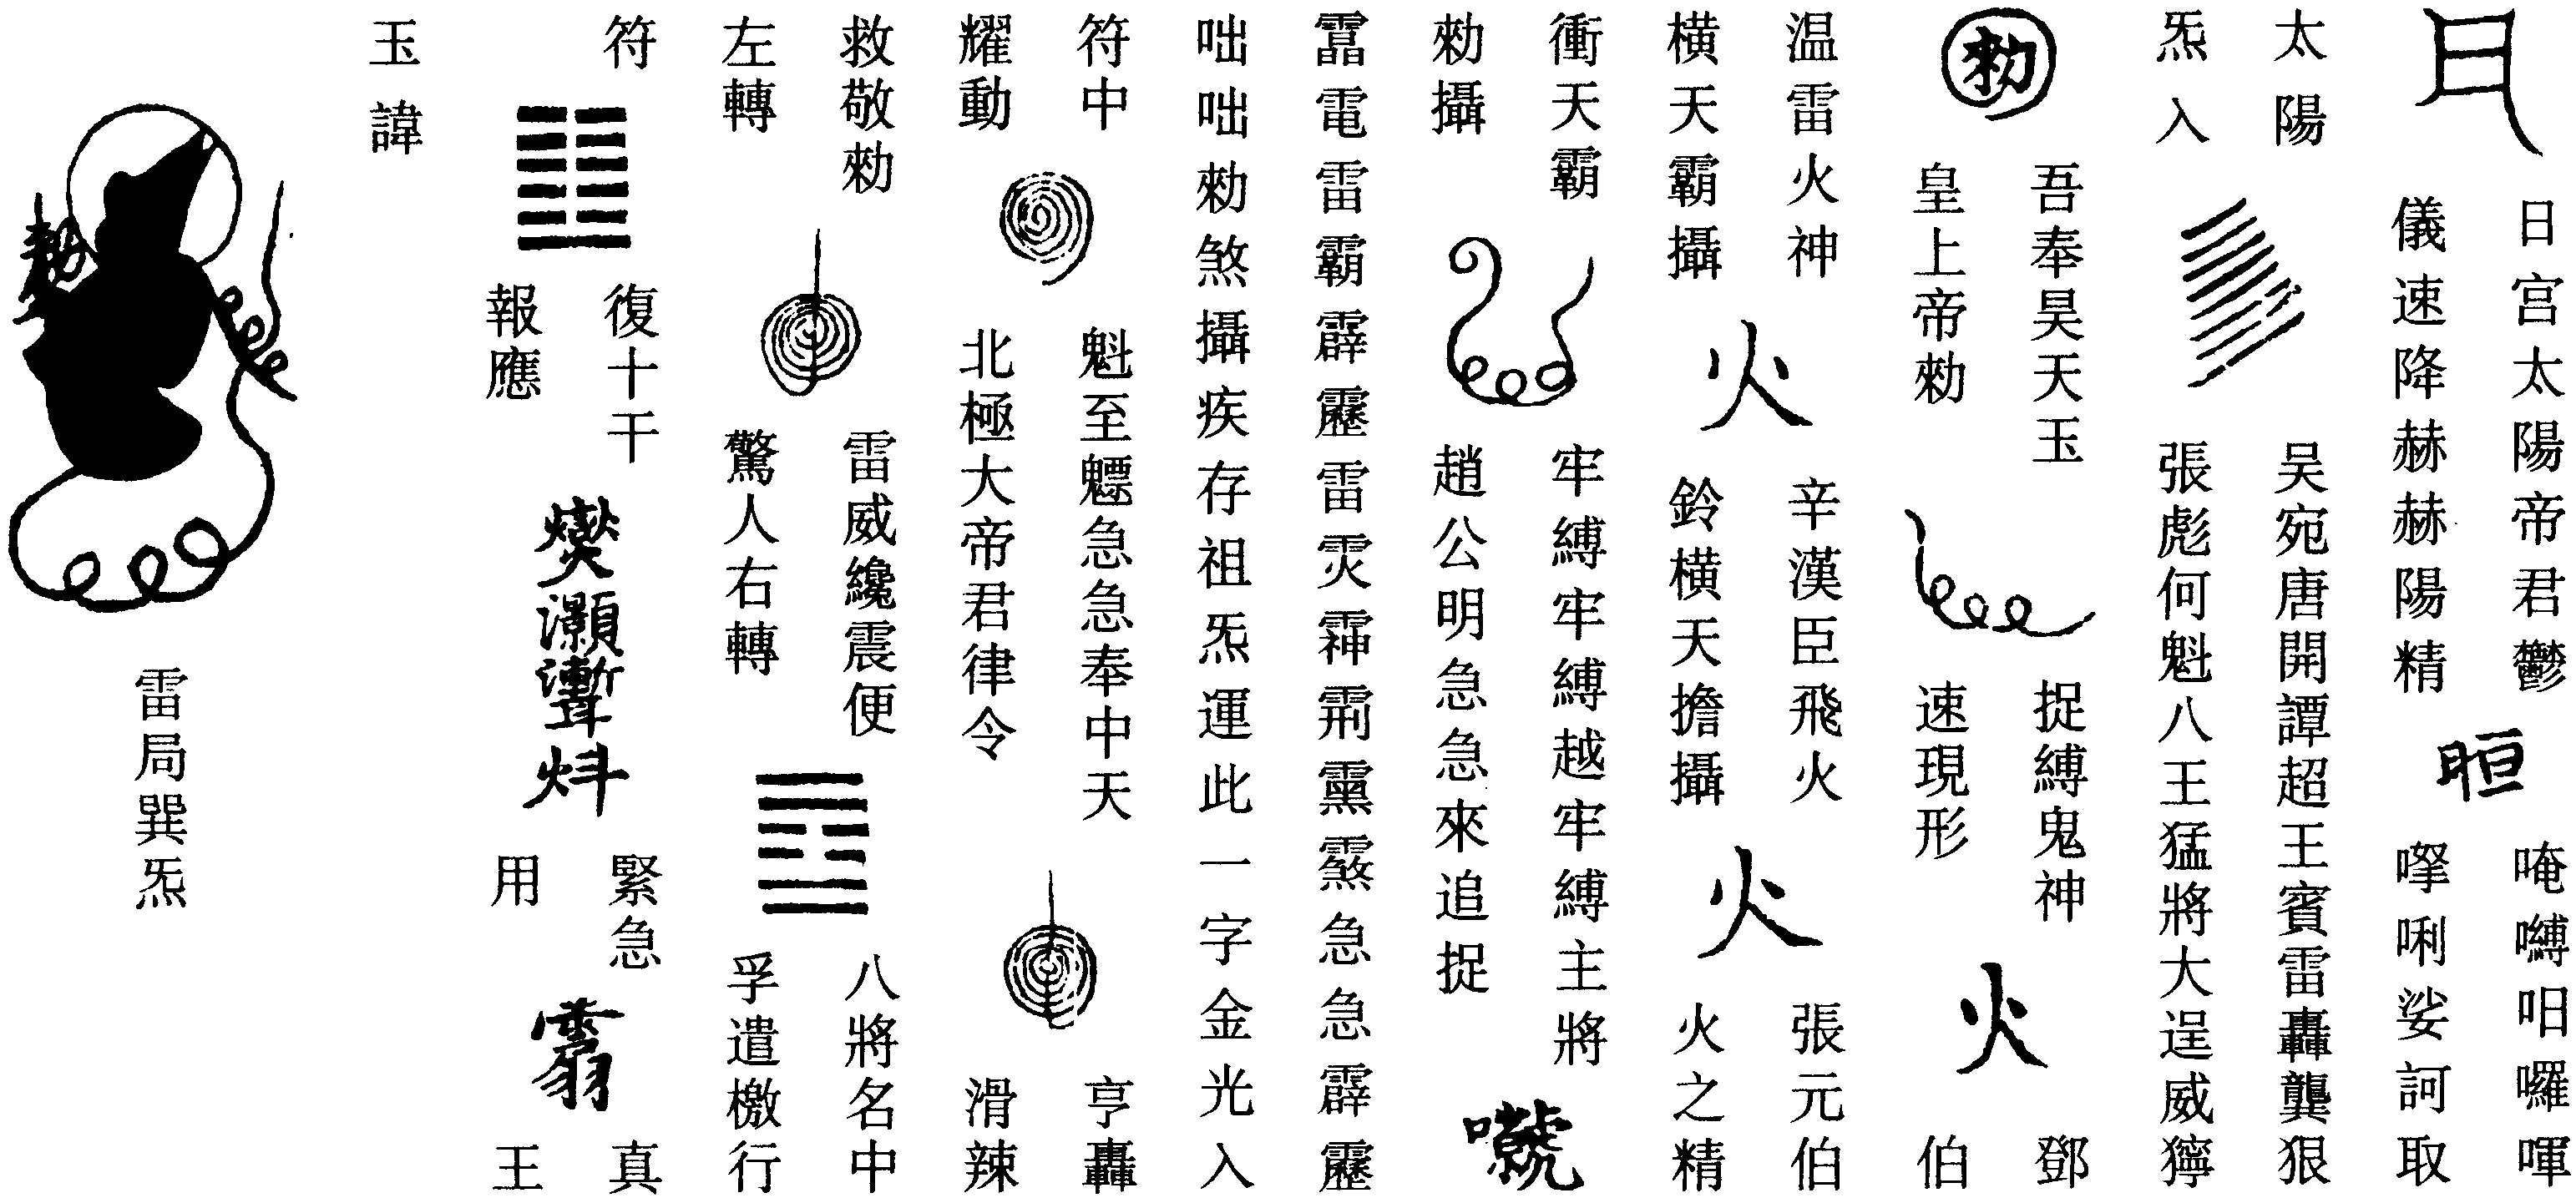 日宫太陽帝君鬱
儀速降赫赫陽精
晅
唵嚩呬囉㖶
㗚唎娑訶取
太陽
炁入
吴宛唐開譚超王賓雷轟龔狠
張彪何魁八王猛將大逞威獰
勑
吾奉昊天玉
皇上帝勑
捉縛鬼神
速現形
火
鄧
伯
温雷火神
横天霸攝
火
辛漢臣飛火
鈴横天擔攝
火
張元伯
火之精
衝天霸
勑攝
牢縛牢縛越牢縛主將
趙公明急急來追捉
電雷霸霹靂雷急急霹靂
咄咄勑煞攝疾存祖炁運此一字金光入
符中
耀動
魁至魒急急奉中天
北極大帝君律令
亨轟
滑辣
救敬勑
左轉
雷威纔震便
驚人右轉
八將名中
孚遣檄行
符
復十干
報應
緊急
用
真
王
玉諱
勑
雷局巽炁